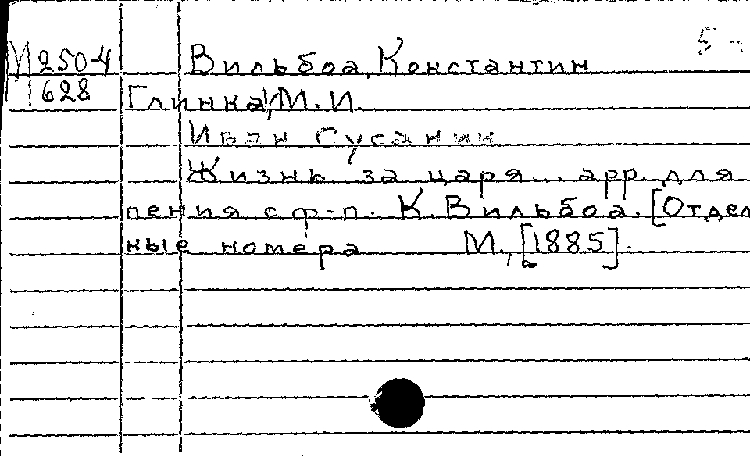 5-
М250-4 Вильбоа, Константин
М628 Глинка, М.И.
Иван Сусанин
Жизнь за царя... арр. для
пения с ф-п. К. Вильбоа. [Отдель
ные номера М., [1885].